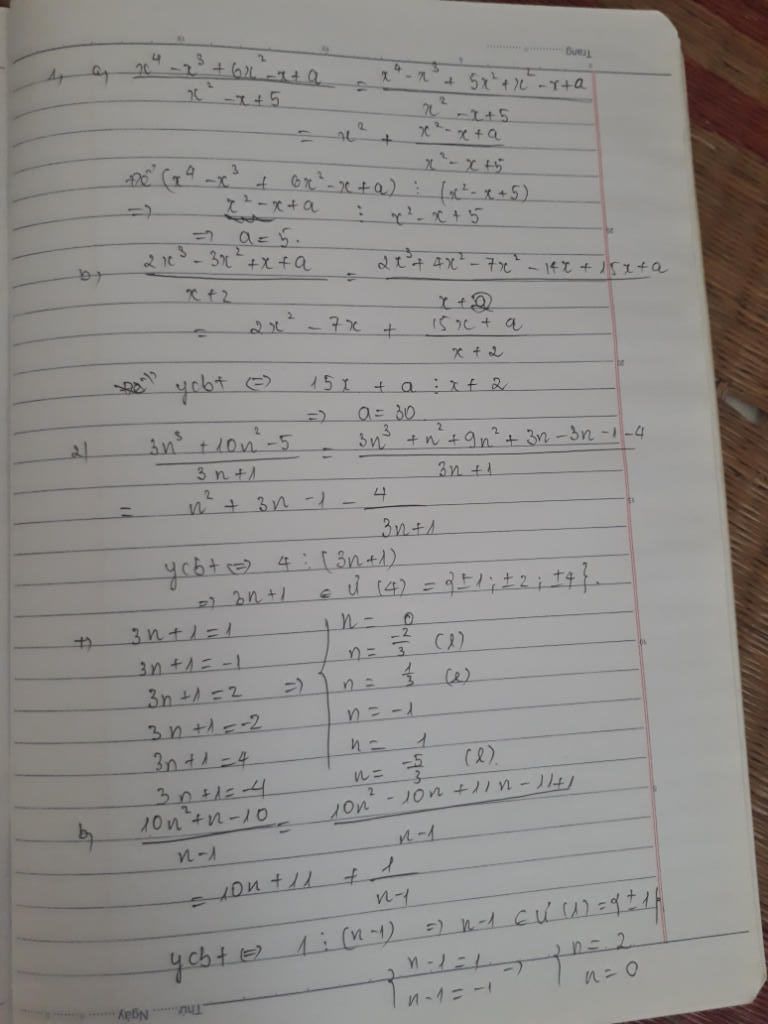 Trang
1, a, x⁴ - x³ + 6x² - x + a / x² - x + 5 = x⁴ - x³ + 5x² + x² - x + a / x² - x + 5
= x² + x² - x + a / x² - x + 5
Để (x⁴ - x³ + 6x² - x + a) ⋮ (x² - x + 5)
=> x² - x + a ⋮ x² - x + 5
=> a = 5.
b, 2x³ - 3x² + x + a / x + 2 = 2x³ + 4x² - 7x² - 14x + 15x + a / x + 2
= 2x² - 7x + 15x + a / x + 2
ycbt <=> 15x + a ⋮ x + 2
=> a = 30
2) 3n³ + 10n² - 5 / 3n + 1 = 3n³ + n² + 9n² + 3n - 3n - 1 - 4 / 3n + 1
= n² + 3n - 1 - 4 / 3n + 1
ycbt <=> 4 ⋮ (3n + 1)
=> 3n + 1 ∈ Ư (4) = {±1; ±2; ±4}.
+) 3n + 1 = 1 n = 0
3n + 1 = -1 n = -2/3 (l)
3n + 1 = 2 => n = 1/3 (l)
3n + 1 = -2 n = -1
3n + 1 = 4 n = 1
3n + 1 = -4 n = -5/3 (l).
b, 10n² + n - 10 / n - 1 = 10n² - 10n + 11n - 11 + 1 / n - 1
= 10n + 11 + 1 / n - 1
ycbt <=> 1 ⋮ (n - 1) => n - 1 ∈ Ư (1) = {±1}
n - 1 = 1 => n = 2
n - 1 = -1 n = 0
Thứ Ngày